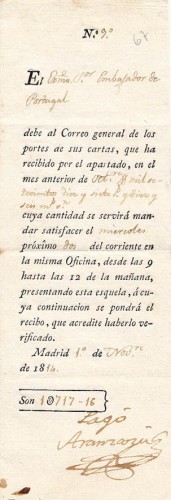 N.º 9.º
67
El Exmo. S.or Embajador de
Portugal
debe al Correo general de los
portes de sus cartas, que ha
recibido por el apartado, en el
mes anterior de Oct.e
cuya cantidad se servirá man-
dar satisfacer el miercoles
próximo dos del corriente en
la misma Oficina, desde las 9
hasta las 12 de la mañana,
presentando esta esquela, á cu-
ya continuacion se pondrá el
recibo, que acredite haberlo ve-
rificado.
Madrid 1.º de Nov.re
de 1814.
Son 10717-16
Lagó
Aranzazu